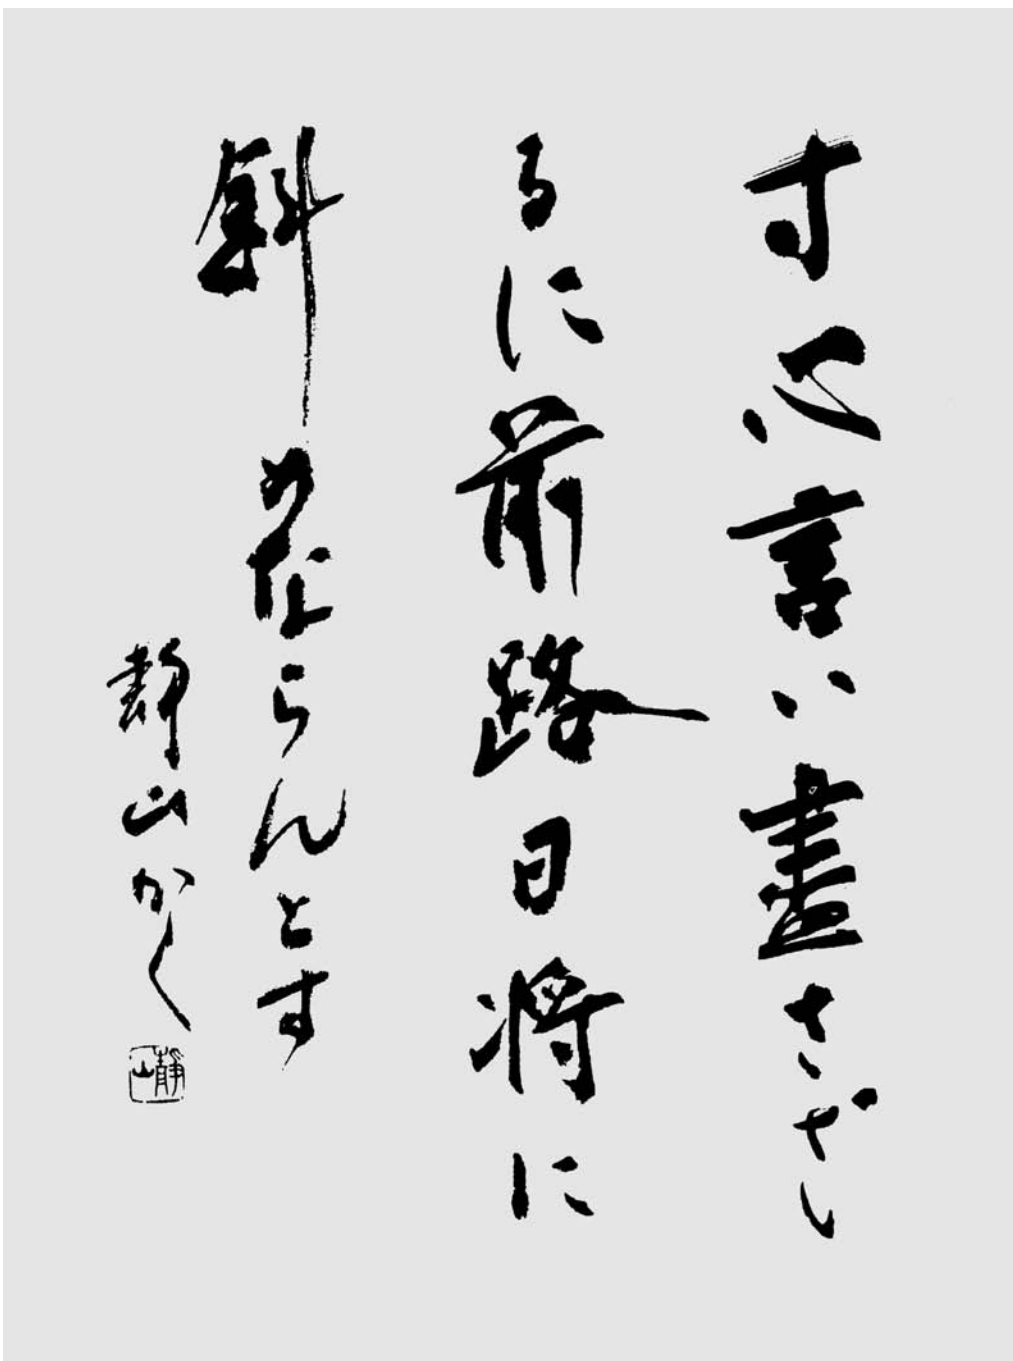 寸心言い盡さざ
るに前路日将に
斜めならんとす
静山かく
靜山